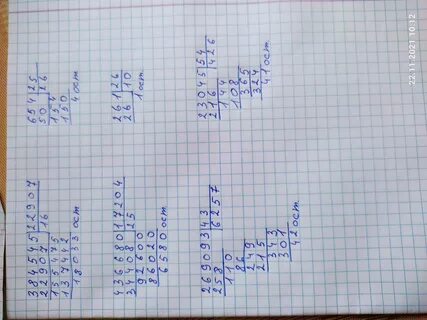 384545|22907
22907|16
155475
137442
18033 ост
654|25
50|26
154
150
4 ост
436680|17204
34408|25
92600
86020
6580 ост
261|26
26|10
1 ост
269093|43
258|6257
110
86
249
215
343
301
42 ост
23045|54
216|426
144
108
365
324
41 ост
22.11.2021 10:12